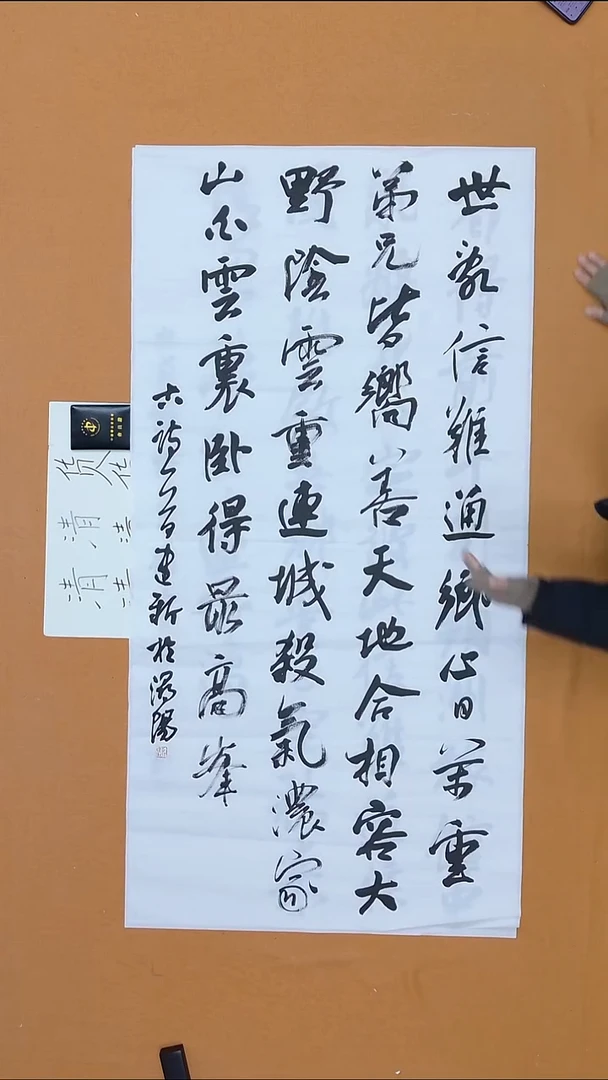 世亂信難通鄉心日萬重
弟兄皆嚮善天地合相容大
野陰雲重連城殺氣濃家
山白雲裏卧得最高峯
古詩一首建新於陽
货
清
清